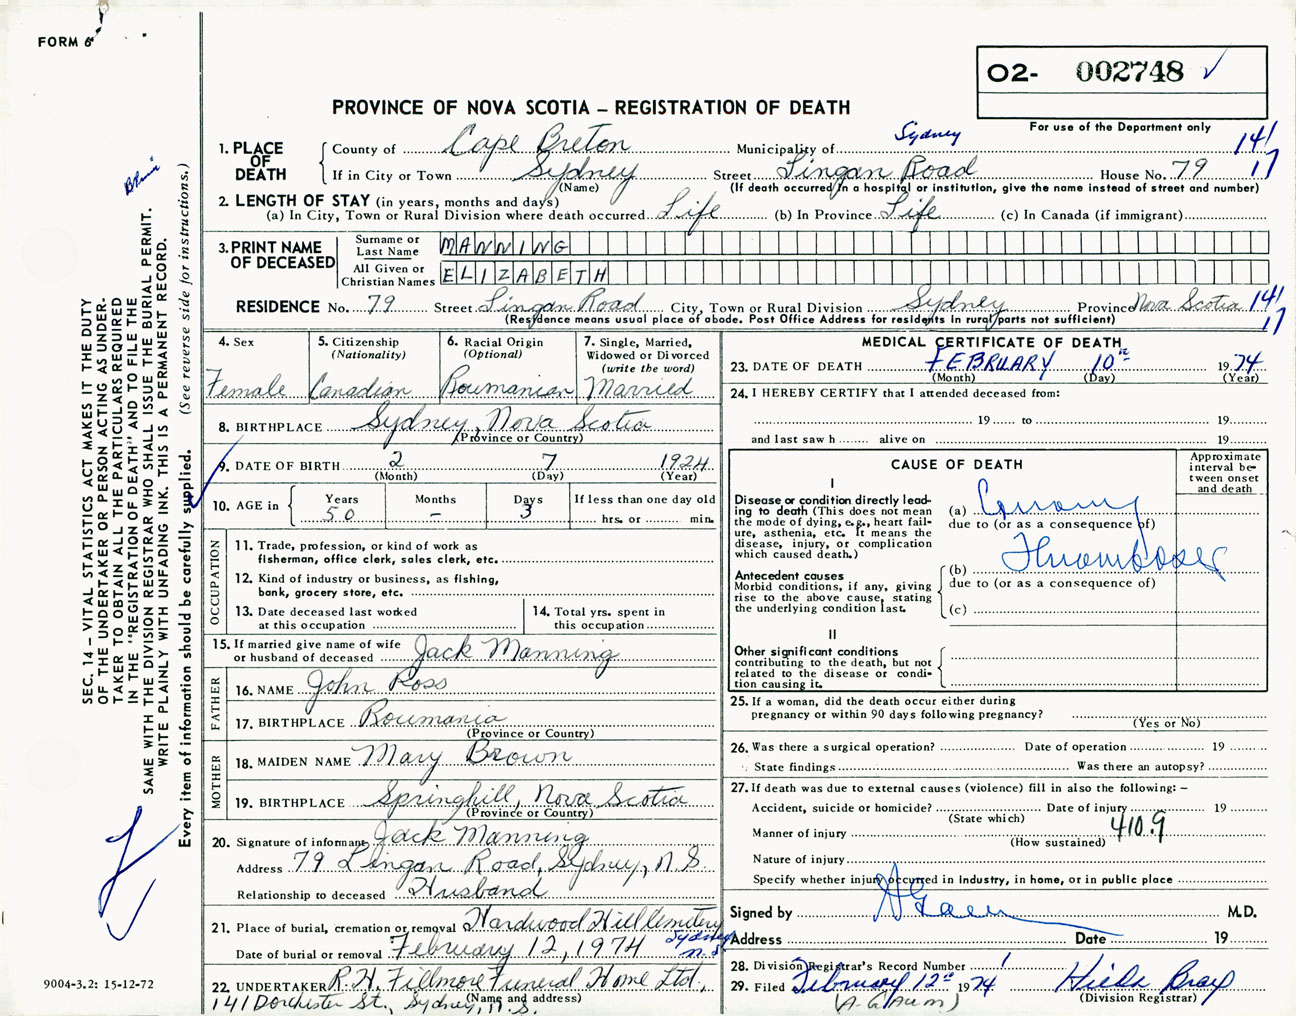 FORM 6
O2- 002748 ✓
PROVINCE OF NOVA SCOTIA – REGISTRATION OF DEATH
For use of the Department only
1. PLACE OF DEATH
County of Cape Breton Municipality of Sydney 141
If in City or Town Sydney Street Lingan Road House No. 79 17
(Name) (If death occurred in a hospital or institution, give the name instead of street and number)
2. LENGTH OF STAY (in years, months and days)
(a) In City, Town or Rural Division where death occurred Life (b) In Province Life (c) In Canada (if immigrant)
3. PRINT NAME OF DECEASED
Surname or Last Name MANNING
All Given or Christian Names ELIZABETH
RESIDENCE No. 79 Street Lingan Road City, Town or Rural Division Sydney Province Nova Scotia 141
(Residence means usual place of abode. Post Office Address for residents in rural parts not sufficient) 17
4. Sex Female
5. Citizenship (Nationality) Canadian
6. Racial Origin (Optional) Roumanian
7. Single, Married, Widowed or Divorced (write the word) Married
8. BIRTHPLACE Sydney, Nova Scotia
(Province or Country)
9. DATE OF BIRTH 2 7 1924
(Month) (Day) (Year)
10. AGE in Years 50 Months – Days 3 If less than one day old hrs. or min.
OCCUPATION
11. Trade, profession, or kind of work as fisherman, office clerk, sales clerk, etc.
12. Kind of industry or business, as fishing, bank, grocery store, etc.
13. Date deceased last worked at this occupation
14. Total yrs. spent in this occupation
15. If married give name of wife or husband of deceased Jack Manning
FATHER
16. NAME John Ross
17. BIRTHPLACE Roumania
(Province or Country)
MOTHER
18. MAIDEN NAME Mary Brown
19. BIRTHPLACE Springhill, Nova Scotia
(Province or Country)
20. Signature of informant Jack Manning
Address 79 Lingan Road, Sydney, N.S.
Relationship to deceased Husband
21. Place of burial, cremation or removal Hardwood Hill Cemetery
Sydney N.S.
Date of burial or removal February 12, 1974
22. UNDERTAKER R.H. Fillmore Funeral Home Ltd.,
(Name and address)
141 Dorchester St., Sydney, N.S.
MEDICAL CERTIFICATE OF DEATH
23. DATE OF DEATH FEBRUARY 10th 1974
(Month) (Day) (Year)
24. I HEREBY CERTIFY that I attended deceased from:
19 to 19
and last saw h alive on 19
CAUSE OF DEATH
Approximate interval between onset and death
I
Disease or condition directly leading to death (This does not mean the mode of dying, e.g., heart failure, asthenia, etc. It means the disease, injury, or complication which caused death.)
(a) Coronary
due to (or as a consequence of)
Antecedent causes
Morbid conditions, if any, giving rise to the above cause, stating the underlying condition last.
(b) Thromboses
due to (or as a consequence of)
(c)
II
Other significant conditions
contributing to the death, but not related to the disease or condition causing it.
25. If a woman, did the death occur either during pregnancy or within 90 days following pregnancy?
(Yes or No)
26. Was there a surgical operation? Date of operation 19
State findings Was there an autopsy?
27. If death was due to external causes (violence) fill in also the following: –
Accident, suicide or homicide? Date of injury 19
(State which)
Manner of injury 410.9
(How sustained)
Nature of injury
Specify whether injury occurred in industry, in home, or in public place
Signed by M.D.
Address Date 19
28. Division Registrar's Record Number 1
29. Filed February 12th 1974 Hilda Bray
(Division Registrar)
(A. Gaum)
SEC. 14 – VITAL STATISTICS ACT MAKES IT THE DUTY
OF THE UNDERTAKER OR PERSON ACTING AS UNDER-
TAKER TO OBTAIN ALL THE PARTICULARS REQUIRED
IN THE "REGISTRATION OF DEATH" AND TO FILE THE
SAME WITH THE DIVISION REGISTRAR WHO SHALL ISSUE THE BURIAL PERMIT.
WRITE PLAINLY WITH UNFADING INK. THIS IS A PERMANENT RECORD.
Every item of information should be carefully supplied. (See reverse side for instructions.)
9004-3.2: 15-12-72